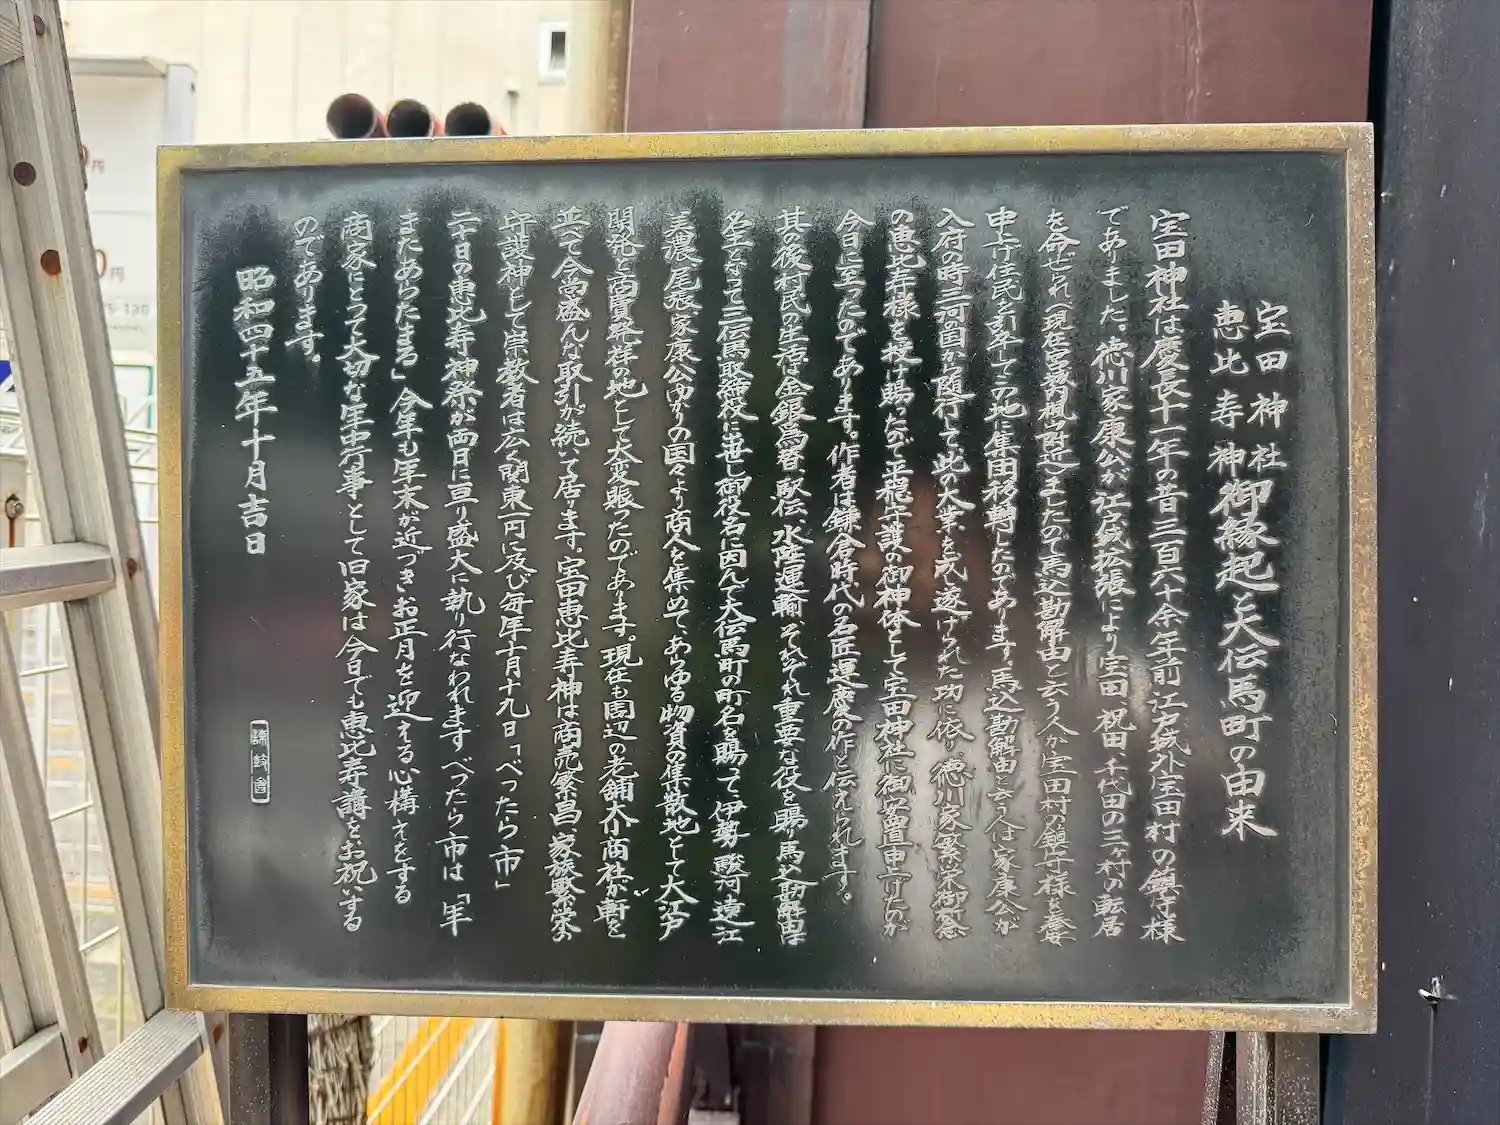 宝田神社
恵比寿神
御縁起と大伝馬町の由来
宝田神社は慶長十一年の昔三百六十余年前江戸城外宝田村の鎮守様
でありました。徳川家康公が江戸城拡張により宝田、祝田、千代田の三ヶ村の転居
を命ぜられ(現在宮城内楓山附近)ましたので馬込勘解由と云う人が宝田村の鎮守様を奉安
申上げ住民を引卒してこの地に集団移転したのであります。馬込勘解由と云う人は家康公が
入府の時三河の国から随行して此の大業を成し遂げられた功に依り、徳川家繁栄御祈念
の恵比寿様を授け賜ったので平穏守護の御神体として宝田神社に御安置申上げたのが
今日に至ったのであります。作者は鎌倉時代の名匠運慶の作と伝えられます。
其の後村民の生活は金銀為替、駅伝、水陸運輸、それぞれ重要な役を賜り馬込勘解由は
名主となって三伝馬取締役に出世し御役名に因んで大伝馬町の町名を賜って、伊勢、駿河、遠江
美濃、尾張、家康公ゆかりの国々より商人を集めて、あらゆる物資の集散地として大江戸
開発と商買発祥の地として大変賑ったのであります。現在も周辺の老舗大小商社が軒を
並べて今尚盛んな取引が続いて居ます。宝田恵比寿神は商売繁昌、家族繁栄の
守護神として崇敬者は広く関東一円に及び毎年十月十九日「べったら市」
二十日の恵比寿神祭が両日に亘り盛大に執り行なわれますべったら市は「年
またあらたまる」今年も年末が近づきお正月を迎える心構えをする
商家にとって大切な年中行事として旧家は今日でも恵比寿講をお祝いする
のであります。
昭和四十五年十月吉日